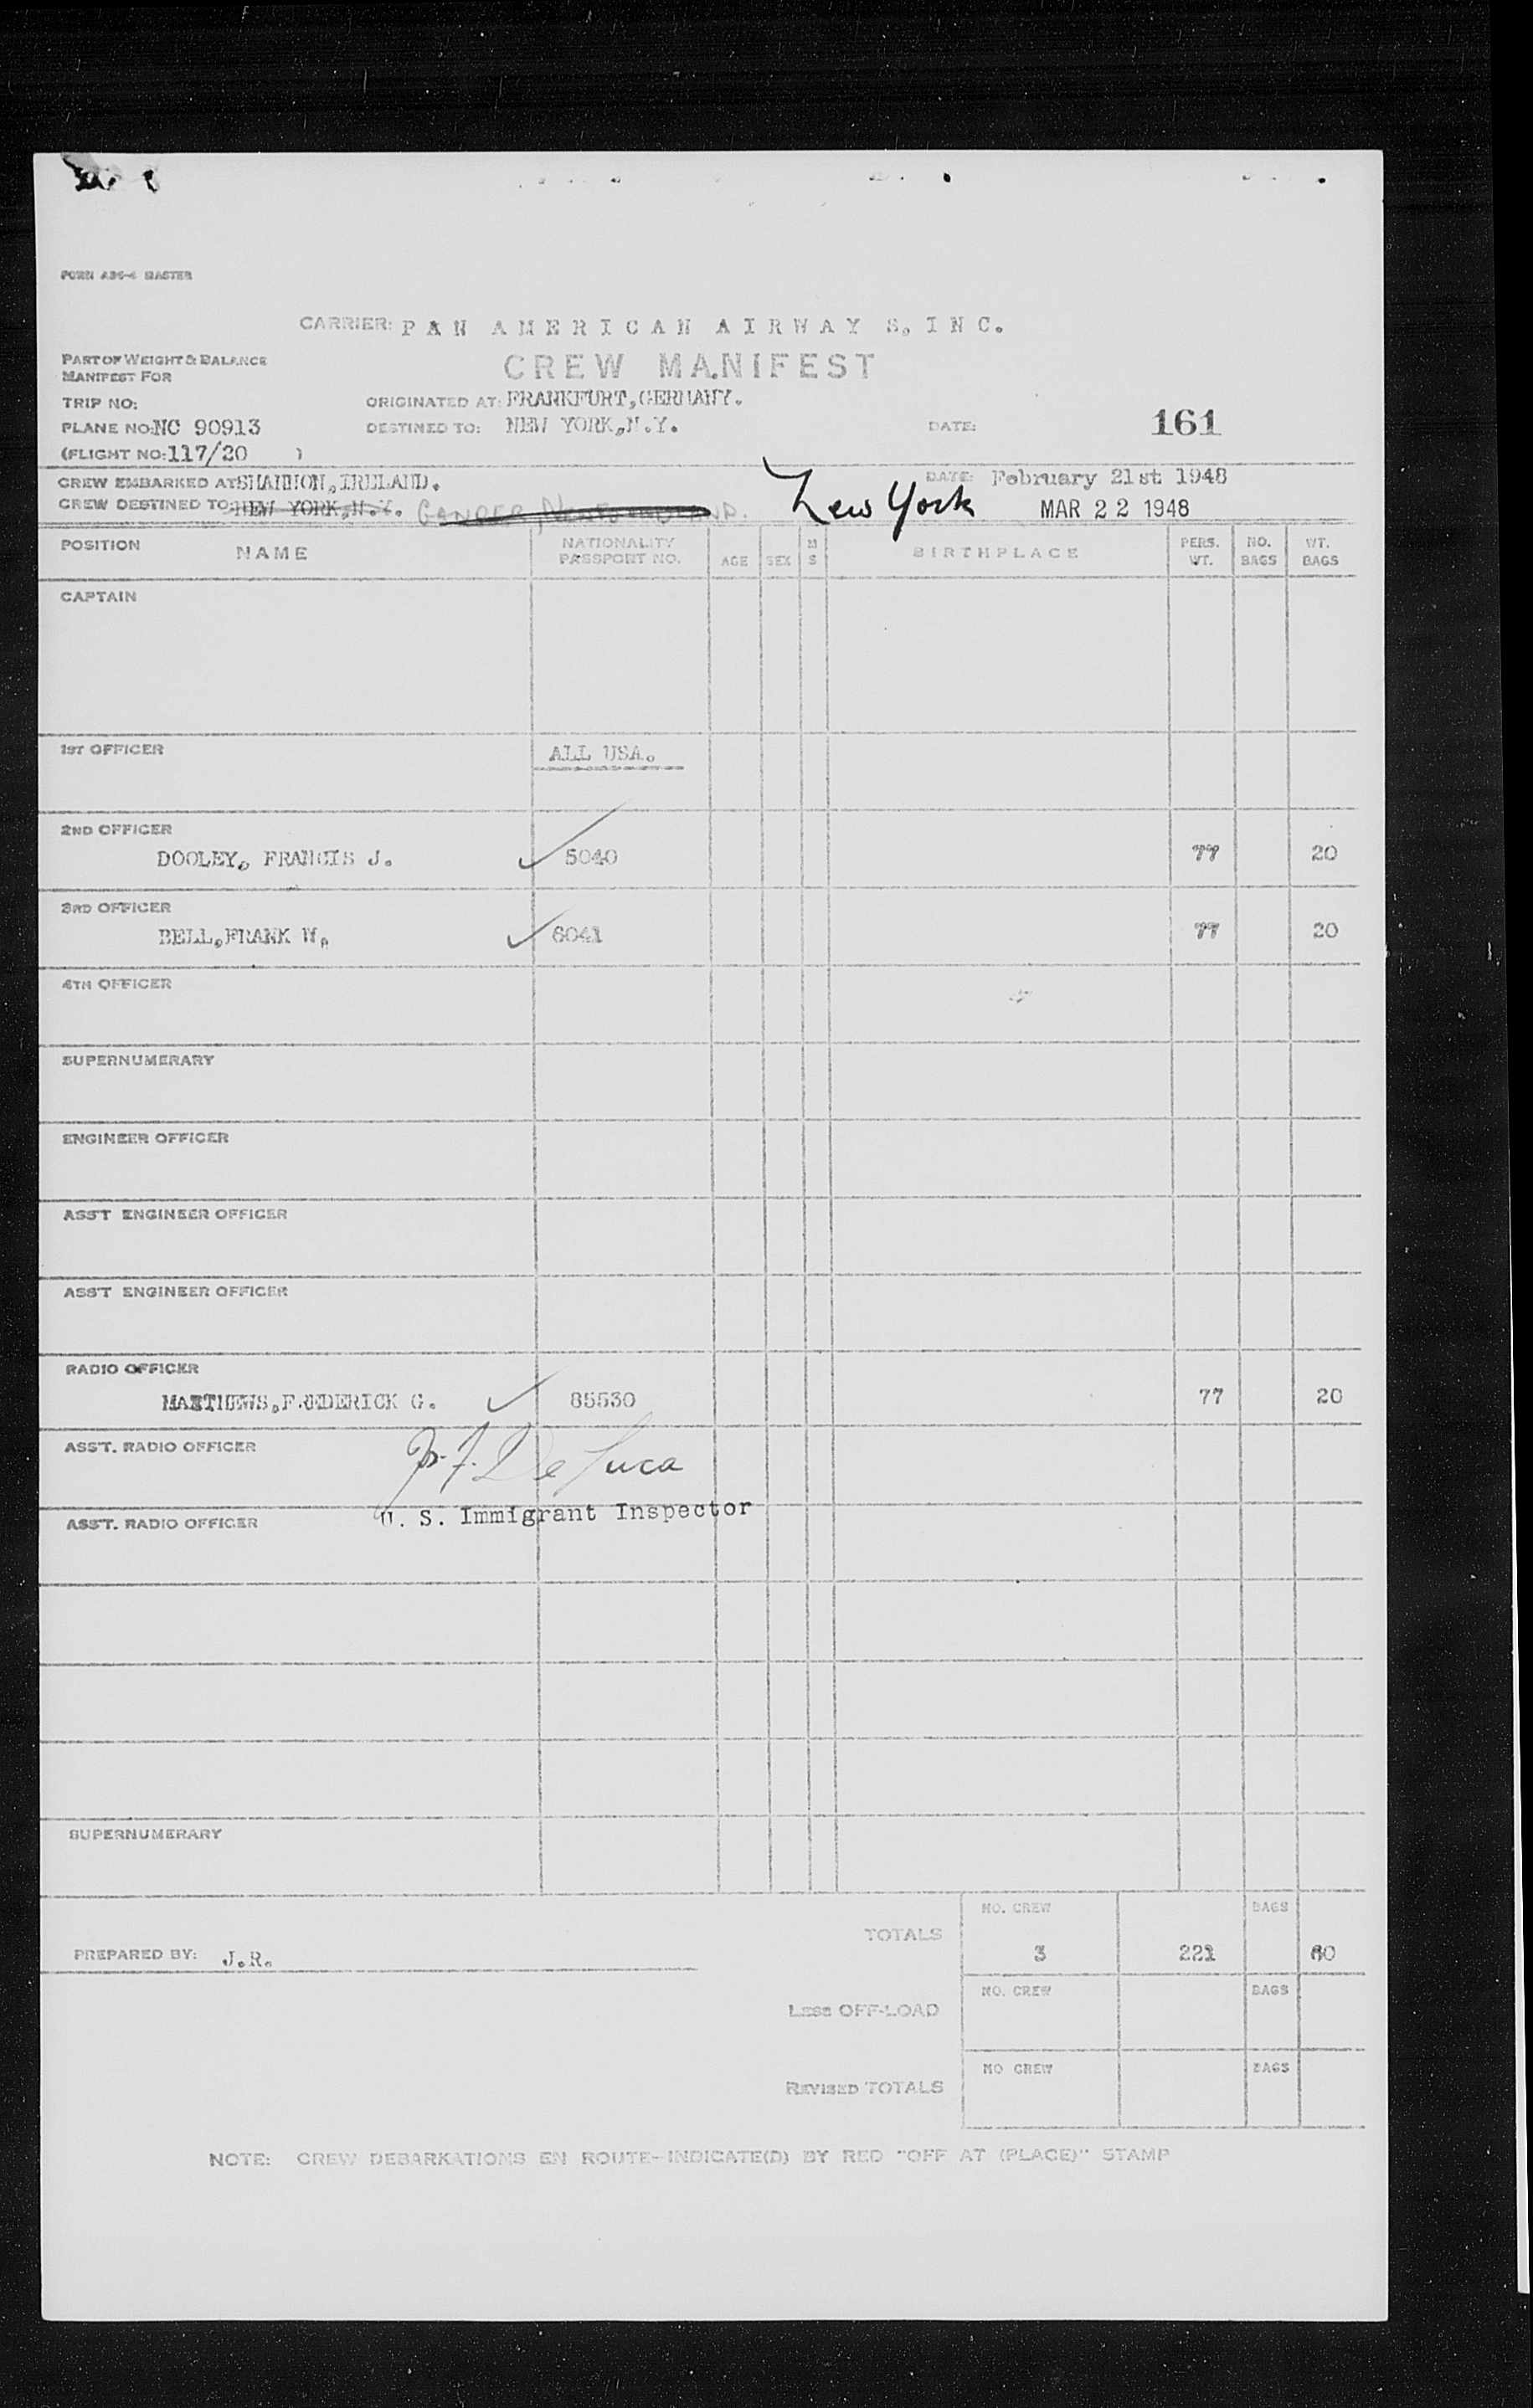 FORM ABS-4 MASTER
CARRIER: PAN AMERICAN AIRWAYS, INC.
PART OF WEIGHT & BALANCE
MANIFEST FOR
CREW MANIFEST
TRIP NO: ORIGINATED AT: FRANKFURT, GERMANY.
PLANE NO: NC 90913 DESTINED TO: NEW YORK, N.Y. DATE: 161
(FLIGHT NO: 117/20 )
CREW EMBARKED AT SHANNON, IRELAND. DATE: February 21st 1948
CREW DESTINED TO: NEW YORK, N.Y. GANDER, NEWFOUNDLAND. New York MAR 22 1948
POSITION NAME NATIONALITY PASSPORT NO. AGE SEX M S BIRTHPLACE PERS. WT. NO. BAGS WT. BAGS
CAPTAIN
1ST OFFICER ALL USA.
2ND OFFICER
DOOLEY, FRANCIS J. 5040 77 20
3RD OFFICER
BELL, FRANK W. 6041 77 20
4TH OFFICER
SUPERNUMERARY
ENGINEER OFFICER
ASS'T ENGINEER OFFICER
ASS'T ENGINEER OFFICER
RADIO OFFICER
MATTHEWS, FREDERICK G. 85530 77 20
ASS'T. RADIO OFFICER
De Luca
U. S. Immigrant Inspector
ASS'T. RADIO OFFICER
SUPERNUMERARY
NO. CREW BAGS
TOTALS
PREPARED BY: J.R. 3 221 60
NO. CREW BAGS
Less OFF-LOAD
NO CREW BAGS
REVISED TOTALS
NOTE: CREW DEBARKATIONS EN ROUTE-INDICATE(D) BY RED "OFF AT (PLACE)" STAMP